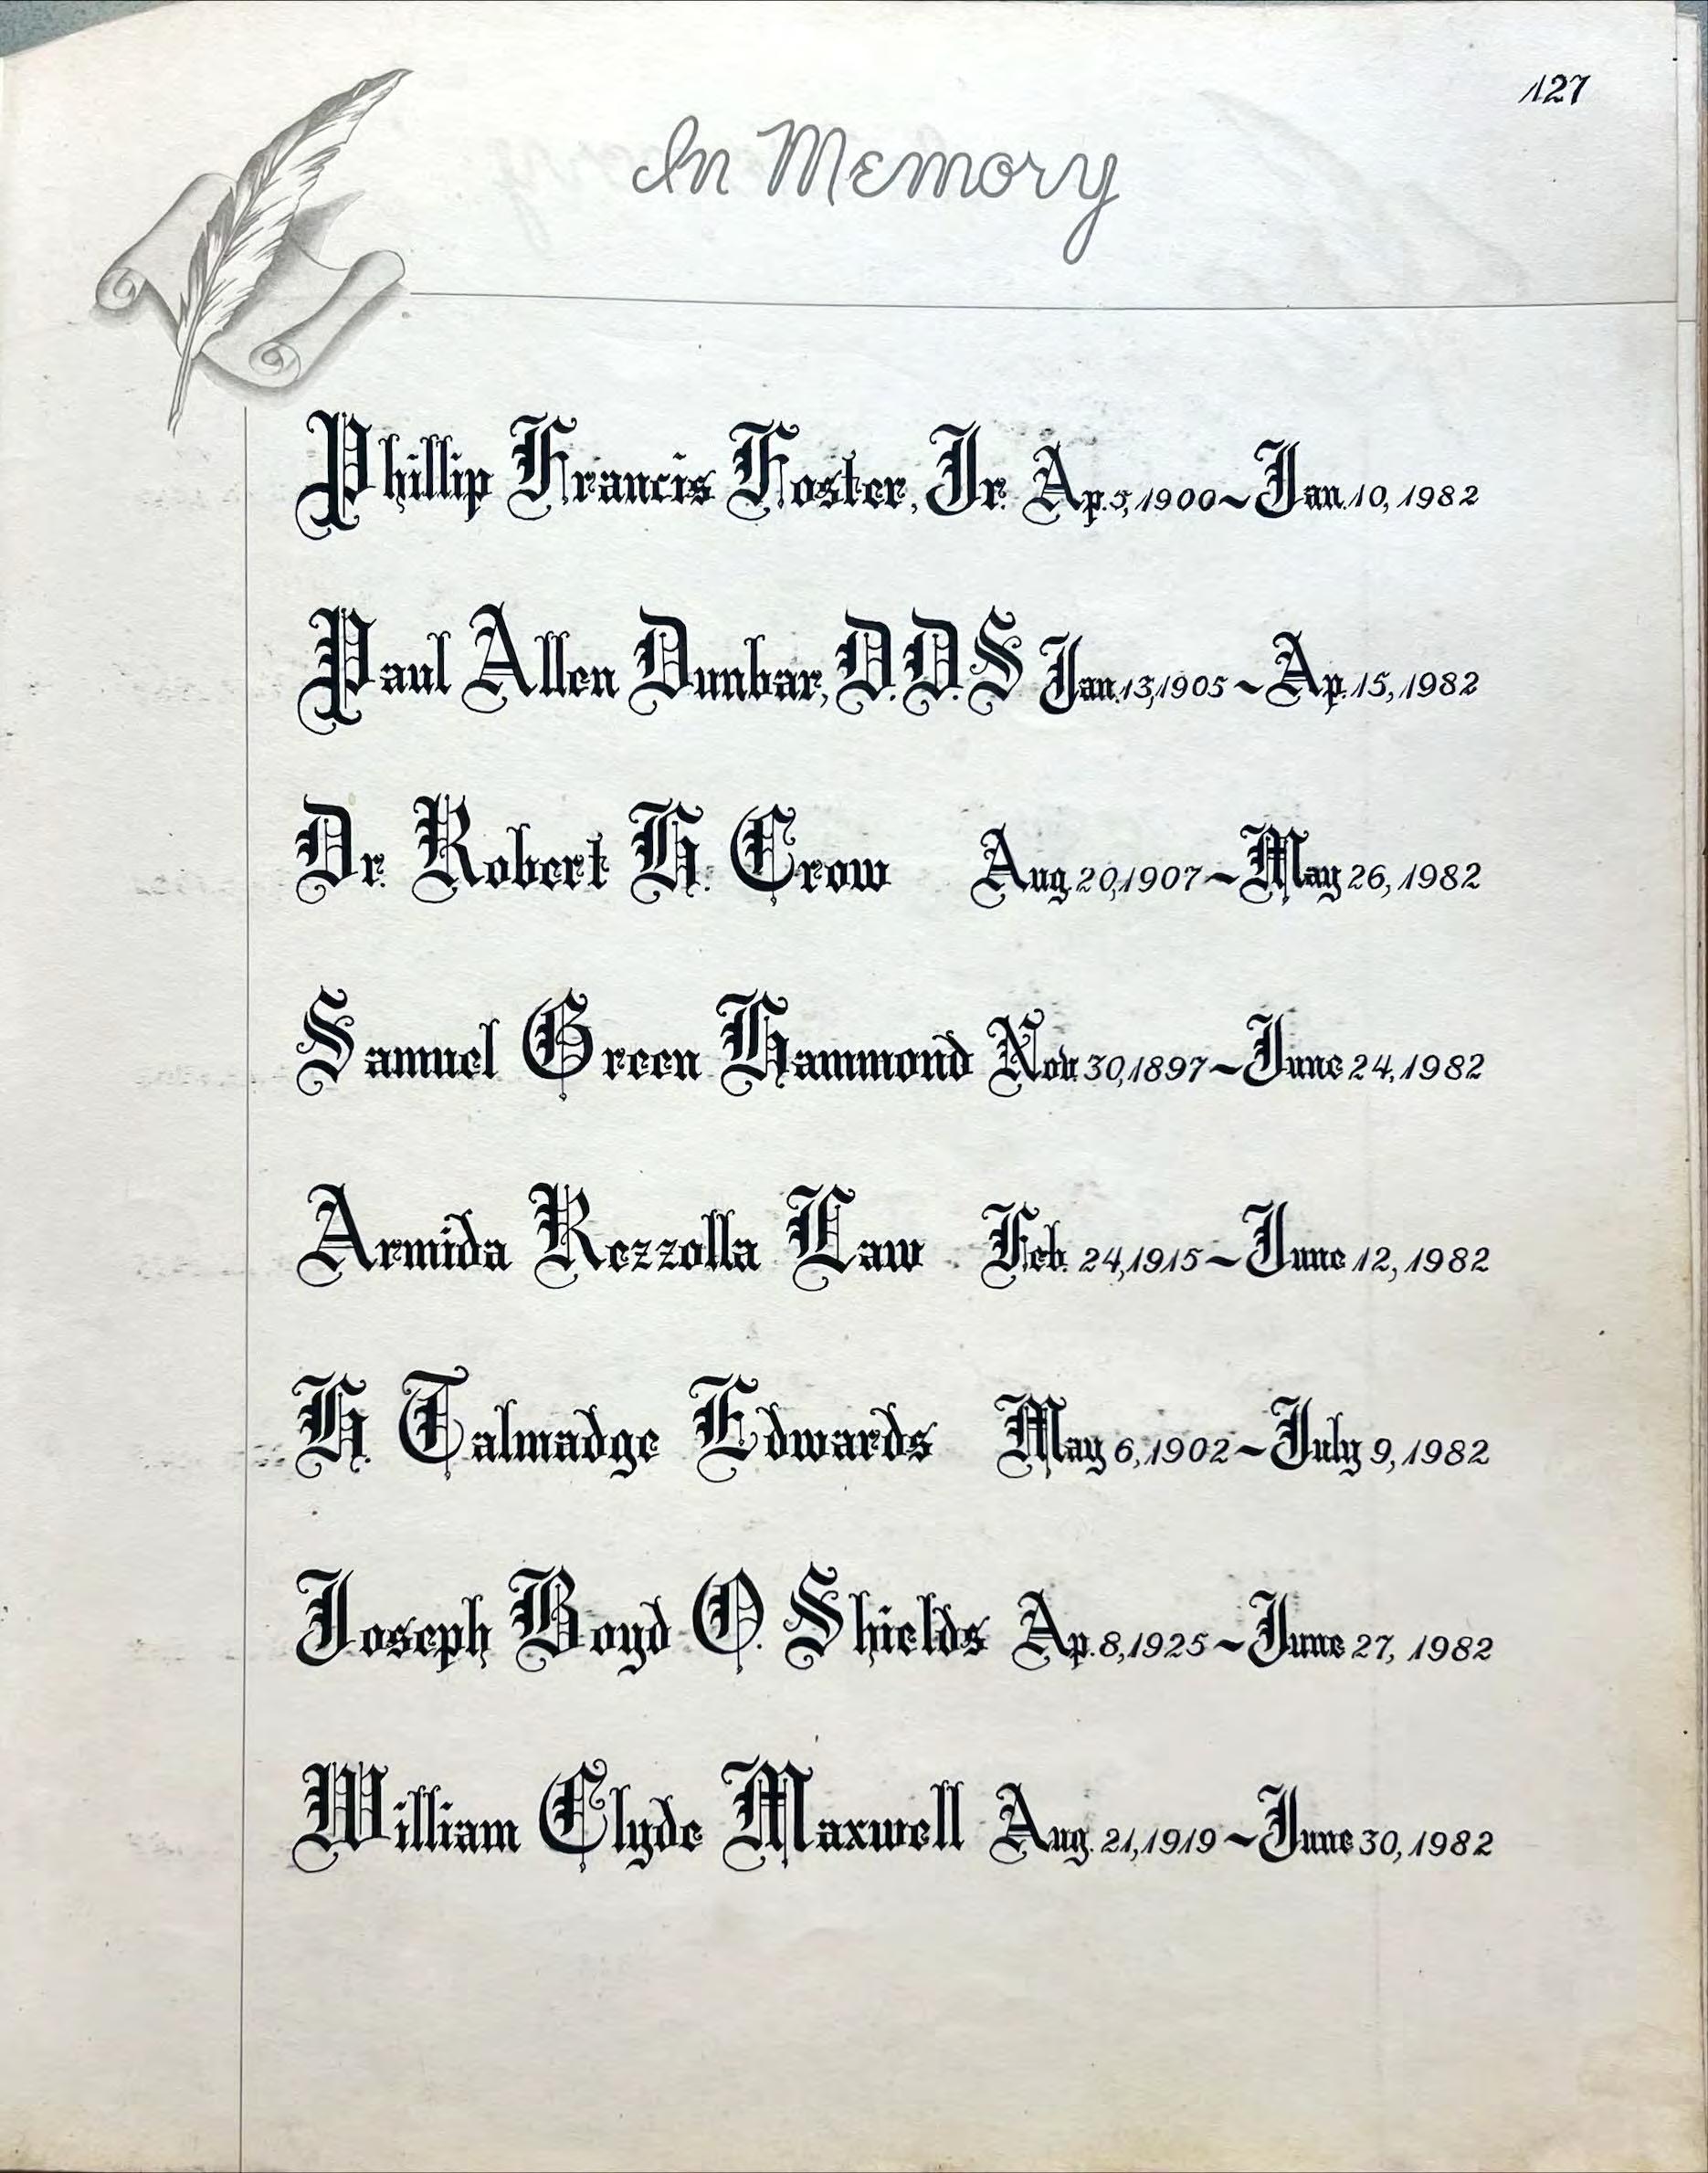 127
In Memory
Phillip Francis Foster, Jr. Ap. 5, 1900 ~ Jan. 10, 1982
Paul Allen Dunbar, D.D.S Jan. 13, 1905 ~ Ap. 15, 1982
Dr. Robert H. Crow Aug. 20, 1907 ~ May 26, 1982
Samuel Green Hammond Nov. 30, 1897 ~ June 24, 1982
Armida Rezzolla Law Feb. 24, 1915 ~ June 12, 1982
H. Talmadge Edwards May 6, 1902 ~ July 9, 1982
Joseph Boyd O. Shields Ap. 8, 1925 ~ June 27, 1982
William Clyde Maxwell Aug. 21, 1919 ~ June 30, 1982